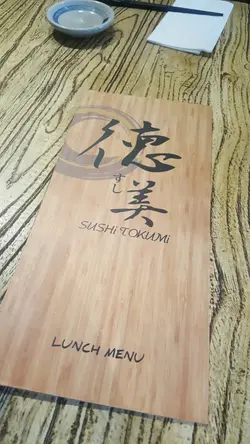 徳
すし
美
SUSHi TOKUMi
LUNCH MENU